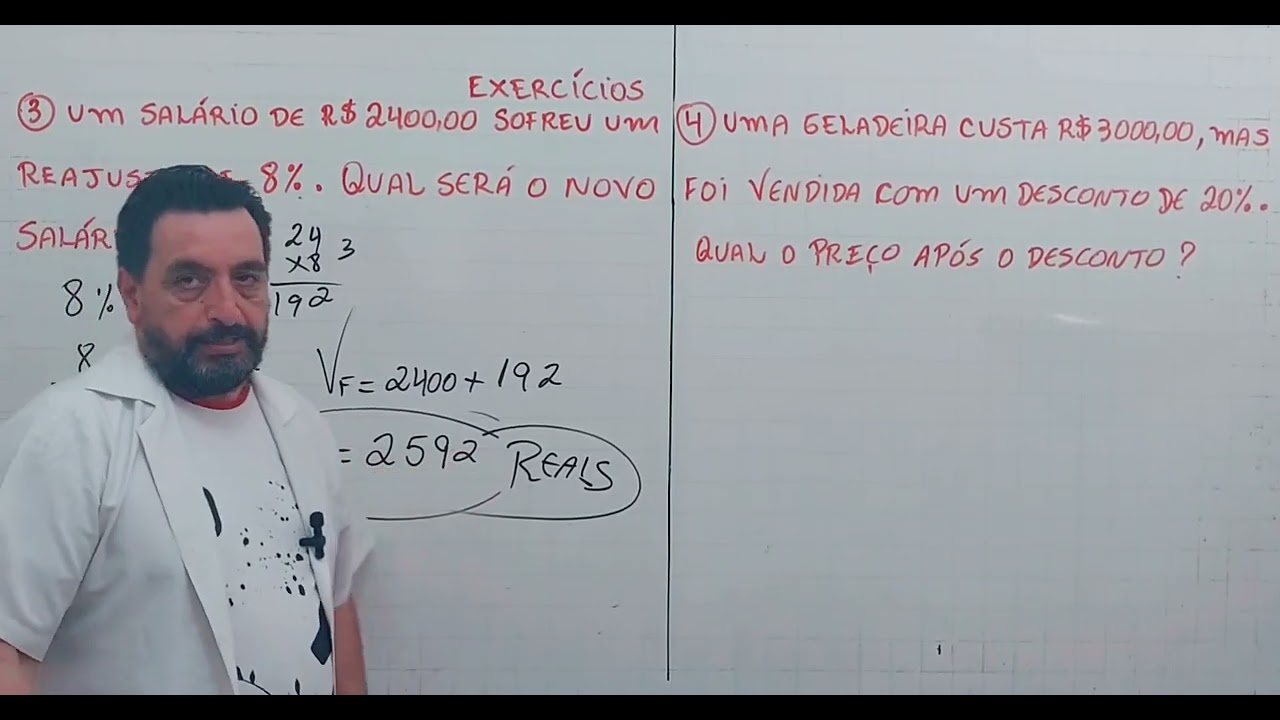 EXERCÍCIOS
③ UM SALÁRIO DE R$ 2400,00 SOFREU UM
8%. QUAL SERÁ O NOVO
24
x8 3
192
8%
8
VF = 2400 + 192
= 2592 REAIS
④ UMA GELADEIRA CUSTA R$ 3000,00, MAS
FOI VENDIDA COM UM DESCONTO DE 20%.
QUAL O PREÇO APÓS O DESCONTO?